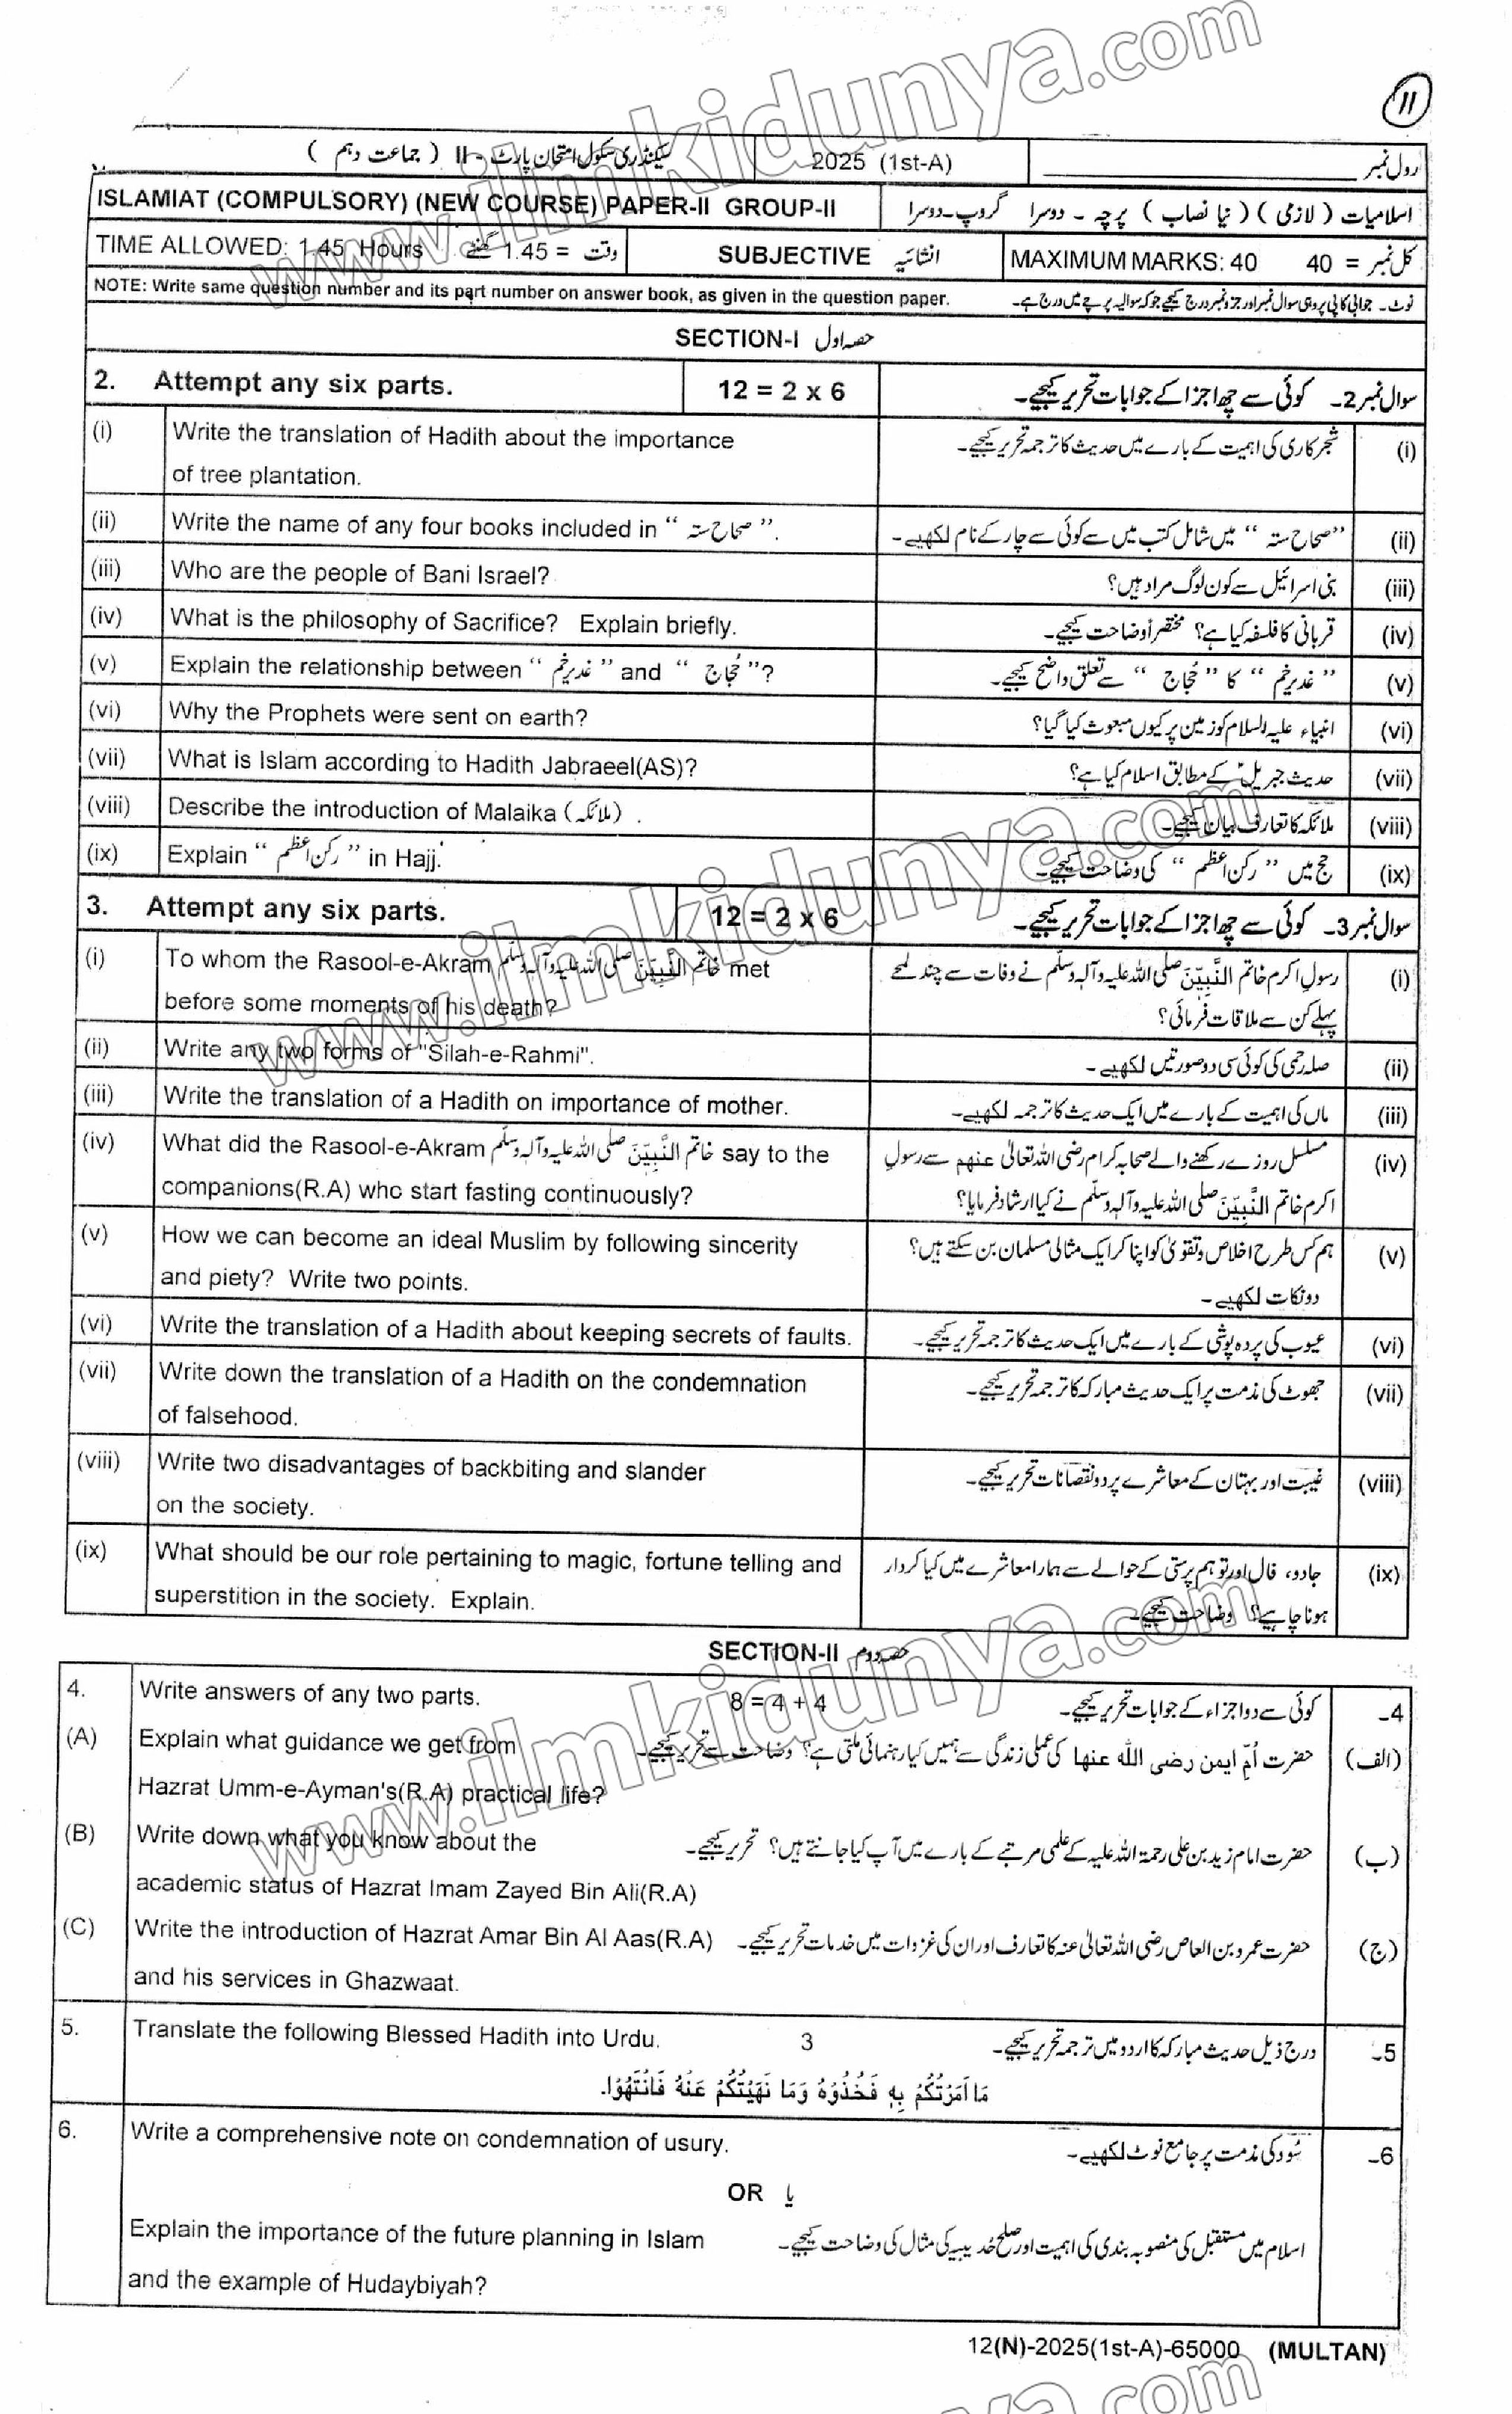 11
سیکنڈری سکول امتحان پارٹ - II ( جماعت دہم )
2025 (1st-A)
رول نمبر
ISLAMIAT (COMPULSORY) (NEW COURSE) PAPER-II GROUP-II
اسلامیات ( لازمی ) ( نیا نصاب ) پرچہ - دوسرا گروپ-دوسرا
TIME ALLOWED: 1.45 Hours وقت = 1.45 گھنٹے
SUBJECTIVE انشائیہ
MAXIMUM MARKS: 40 کل نمبر = 40
NOTE: Write same question number and its part number on answer book, as given in the question paper.
نوٹ - جوابی کاپی پر وہی سوال نمبر اور جزو نمبر درج کیجیے جو کہ سوالیہ پرچے میں درج ہے-
SECTION-I حصہ اول
2. Attempt any six parts. 12 = 2 x 6
سوال نمبر 2- کوئی سے چھ اجزا کے جوابات تحریر کیجیے-
(i) Write the translation of Hadith about the importance
of tree plantation.
شجر کاری کی اہمیت کے بارے میں حدیث کا ترجمہ تحریر کیجیے- (i)
(ii) Write the name of any four books included in “ صحاح ستہ ”.
”صحاح ستہ “ میں شامل کتب میں سے کوئی سے چار کے نام لکھیے- (ii)
(iii) Who are the people of Bani Israel?
بنی اسرائیل سے کون لوگ مراد ہیں؟ (iii)
(iv) What is the philosophy of Sacrifice? Explain briefly.
قربانی کا فلسفہ کیا ہے؟ مختصراً وضاحت کیجیے- (iv)
(v) Explain the relationship between “ غدیرخم ” and “ حُجاج ”?
” غدیرخم “ کا ” حُجاج “ سے تعلق واضح کیجیے- (v)
(vi) Why the Prophets were sent on earth?
انبیاء علیہ السلام کو زمین پر کیوں مبعوث کیا گیا؟ (vi)
(vii) What is Islam according to Hadith Jabraeel(AS)?
حدیث جبریلؑ کے مطابق اسلام کیا ہے؟ (vii)
(viii) Describe the introduction of Malaika (ملائکہ) .
ملائکہ کا تعارف بیان کیجیے- (viii)
(ix) Explain “ رکن اعظم ” in Hajj.
حج میں ” رکن اعظم “ کی وضاحت کیجیے- (ix)
3. Attempt any six parts. 12 = 2 x 6
سوال نمبر 3- کوئی سے چھ اجزا کے جوابات تحریر کیجیے-
(i) To whom the Rasool-e-Akram خاتم النَّبِیّٖنَ صلی اللہ علیہ وآلہ وسلّم met
before some moments of his death?
رسولِ اکرم خاتم النَّبِیّٖنَ صلی اللہ علیہ وآلہ وسلّم نے وفات سے چند لمحے (i)
پہلے کن سے ملاقات فرمائی؟
(ii) Write any two forms of "Silah-e-Rahmi".
صلہ رحمی کی کوئی سی دو صورتیں لکھیے - (ii)
(iii) Write the translation of a Hadith on importance of mother.
ماں کی اہمیت کے بارے میں ایک حدیث کا ترجمہ لکھیے- (iii)
(iv) What did the Rasool-e-Akram خاتم النَّبِیّٖنَ صلی اللہ علیہ وآلہ وسلّم say to the
companions(R.A) who start fasting continuously?
مسلسل روزے رکھنے والے صحابہ کرام رضی اللہ تعالیٰ عنہم سے رسولِ (iv)
اکرم خاتم النَّبِیّٖنَ صلی اللہ علیہ وآلہ وسلّم نے کیا ارشاد فرمایا؟
(v) How we can become an ideal Muslim by following sincerity
and piety? Write two points.
ہم کس طرح اخلاص و تقویٰ کو اپنا کر ایک مثالی مسلمان بن سکتے ہیں؟ (v)
دو نکات لکھیے -
(vi) Write the translation of a Hadith about keeping secrets of faults.
عیوب کی پردہ پوشی کے بارے میں ایک حدیث کا ترجمہ تحریر کیجیے- (vi)
(vii) Write down the translation of a Hadith on the condemnation
of falsehood.
جھوٹ کی مذمت پر ایک حدیث مبارکہ کا ترجمہ تحریر کیجیے- (vii)
(viii) Write two disadvantages of backbiting and slander
on the society.
غیبت اور بہتان کے معاشرے پر دو نقصانات تحریر کیجیے- (viii)
(ix) What should be our role pertaining to magic, fortune telling and
superstition in the society. Explain.
جادو، فال اور توہم پرستی کے حوالے سے ہمارا معاشرے میں کیا کردار (ix)
ہونا چاہیے؟ وضاحت کیجیے-
SECTION-II حصہ دوم
4. Write answers of any two parts. 8 = 4 + 4 کوئی سے دو اجزاء کے جوابات تحریر کیجیے- -4
(A) Explain what guidance we get from
Hazrat Umm-e-Ayman's(R.A) practical life?
حضرت اُمِّ ایمن رضی اللہ عنہا کی عملی زندگی سے ہمیں کیا رہنمائی ملتی ہے؟ وضاحت سے تحریر کیجیے- (الف)
(B) Write down what you know about the
academic status of Hazrat Imam Zayed Bin Ali(R.A)
حضرت امام زید بن علی رحمۃ اللہ علیہ کے علمی مرتبے کے بارے میں آپ کیا جانتے ہیں؟ تحریر کیجیے- (ب)
(C) Write the introduction of Hazrat Amar Bin Al Aas(R.A)
and his services in Ghazwaat.
حضرت عمرو بن العاص رضی اللہ تعالیٰ عنہ کا تعارف اور ان کی غزوات میں خدمات تحریر کیجیے- (ج)
5. Translate the following Blessed Hadith into Urdu. 3 درج ذیل حدیث مبارکہ کا اردو میں ترجمہ تحریر کیجیے- -5
مَا اَمَرْتُكُمْ بِهٖ فَخُذُوْهُ وَمَا نَهَيْتُكُمْ عَنْهُ فَانْتَهُوْا.
6. Write a comprehensive note on condemnation of usury. سُود کی مذمت پر جامع نوٹ لکھیے- -6
OR یا
Explain the importance of the future planning in Islam
and the example of Hudaybiyah?
اسلام میں مستقبل کی منصوبہ بندی کی اہمیت اور صلح حُدیبیہ کی مثال کی وضاحت کیجیے-
12(N)-2025(1st-A)-65000 (MULTAN)
www.ilmkidunya.com
www.ilmkidunya.com
www.ilmkidunya.com
ya.com